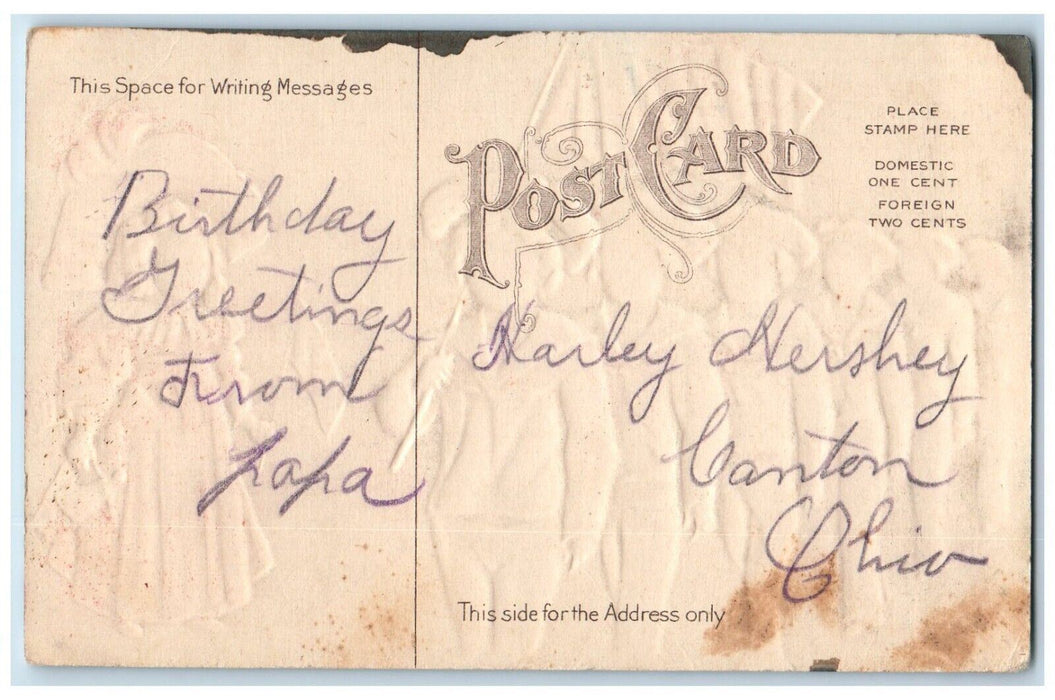 This Space for Writing Messages
POST CARD
PLACE
STAMP HERE
DOMESTIC
ONE CENT
FOREIGN
TWO CENTS
Birthday
Greetings
From
papa
Harley Hershey
Canton
Ohio
This side for the Address only